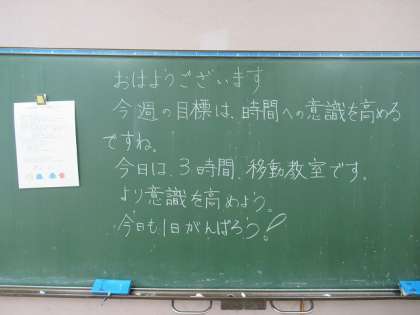 おはようございます
今週の目標は、時間への意識を高める
ですね。
今日は、3時間、移動教室です。
より意識を高めよう。
今日も1日がんばろう!